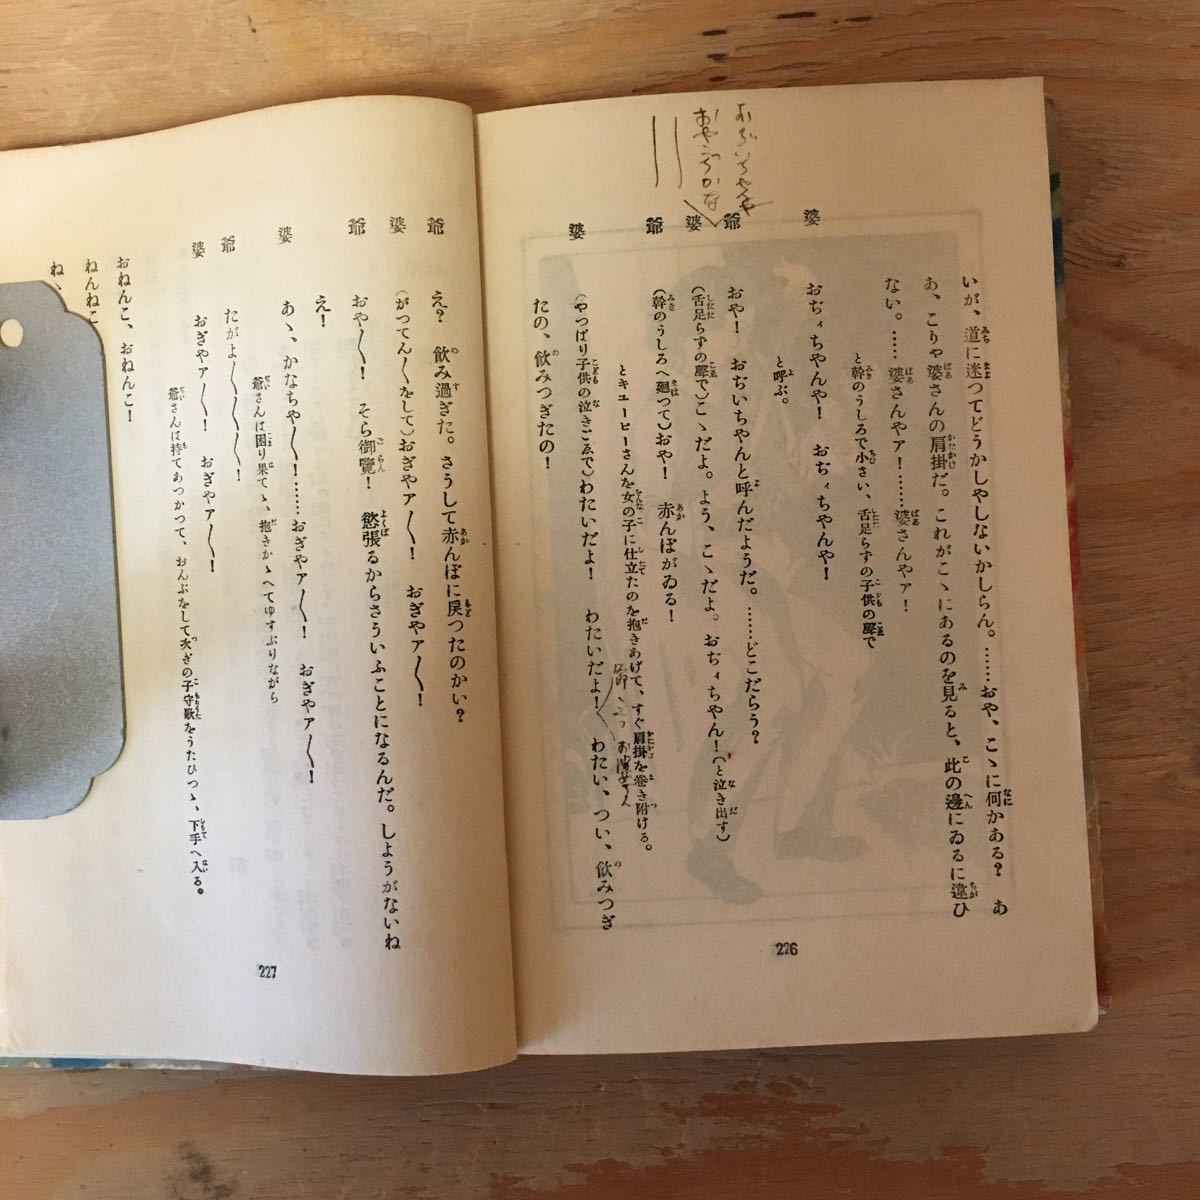 いが、道に迷つてどうかしやしないかしらん。……おや、こゝに何かある？　あ
あ、こりや婆さんの肩掛だ。これがこゝにあるのを見ると、此の邊にゐるに違ひ
ない。……婆さんやァ！……婆さんやァ！
と幹のうしろで小さい、舌足らずの子供の聲で
婆　おぢィちやんや！　おぢィちやんや！
と呼ぶ。
爺　おや！　おぢいちやんと呼んだようだ。……どこだらう？
婆　（舌足らずの聲で）こゝだよ。よう、こゝだよ。おぢィちやん！（と泣き出す）
爺　（幹のうしろへ廻つて）おや！　赤んぼがゐる！
とキューピーさんを女の子に仕立たのを抱きあげて、すぐ肩掛を巻き附ける。
婆　（やつぱり子供の泣きごゑで）わたいだよ！　わたいだよ！　わたい、つい、飲みつぎ
たの、飲みつぎたの！
226
爺　え？　飲み過ぎた。さうして赤んぼに戻つたのかい？
婆　（がつてん〱をして）おぎやァ〱！　おぎやァ〱！
爺　おや〱！　そら御覽！　慾張るからさういふことになるんだ。しようがないね
え！
婆　あゝ、かなちや〱！……おぎやァ〱！　おぎやァ〱！
爺さんは困り果てゝ、抱きかゝへてゆすぶりながら
爺　たがよ〱〱〱！
婆　おぎやァ〱！　おぎやァ〱！
爺さんは持てあつかつて、おんぶをして次ぎの子守歌をうたひつゝ、下手へ入る。
おねんこ、おねんこ！
ねんねこ
ね、
227